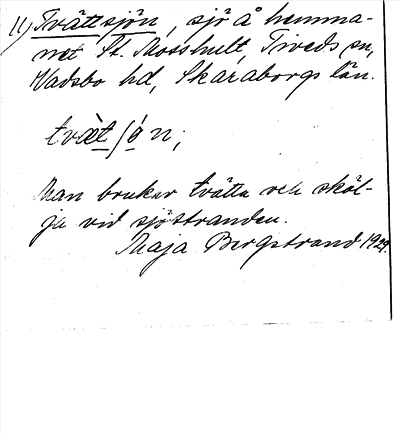 11) Tvättsjön, sjö å hemma-
net St. Mosshult, Tiveds sn,
Vadsbo hd, Skaraborgs län.
tvæ̀t/ǿn;
Man brukar tvätta och sköl-
ja vid sjöstranden.
Maja Bergstrand 1929.